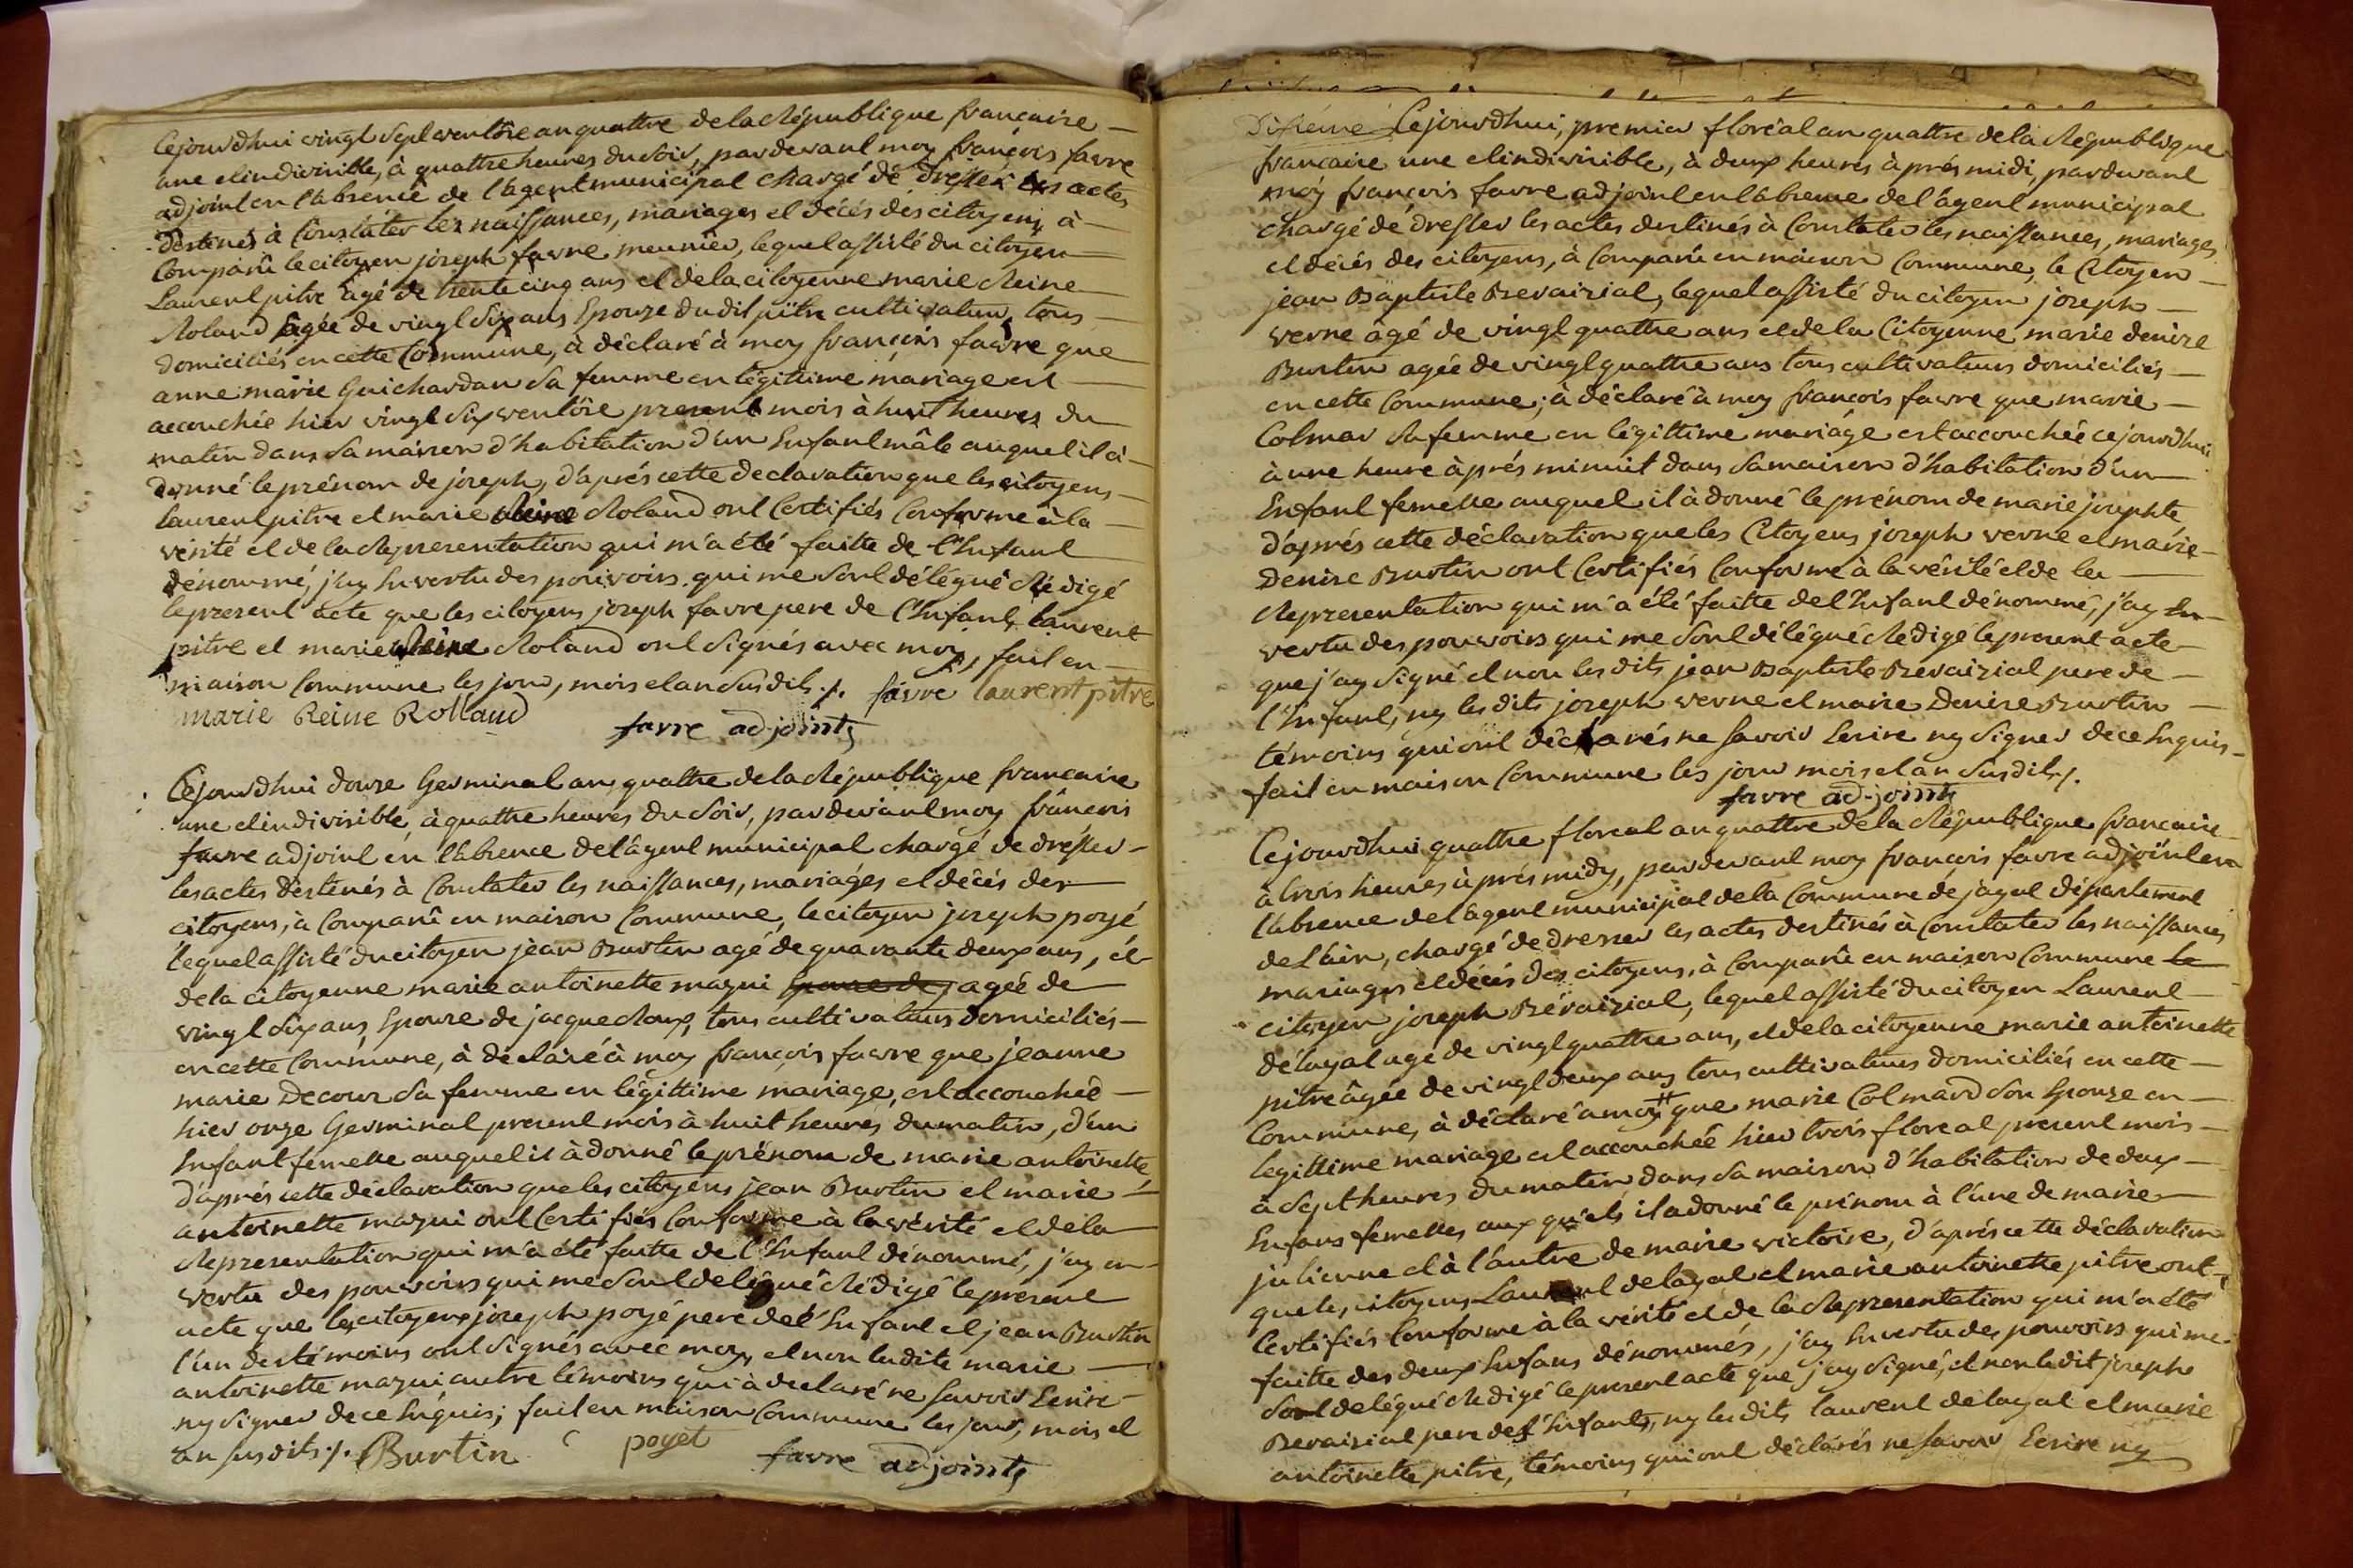 Cejourdhui vingt Sept ventôse an quattre de la République francaise —
une et indivisible, à quattre heures du Soir, pardevant moy françois favre
adjoint en l'absence de l'agent municipal chargé de dresser les actes
destinés à Constater les naissances, mariages et décés des citoyens, à —
Comparû le citoyen joseph favre meunier, lequel assisté du citoyen —
Laurent pitre âgé de trente cinq ans et de la citoyenne marie Reine —
Roland âgée de vingt Six ans Epouze dudit pitre cultivateur, tous —
domiciliés en cette Commune, à déclaré à moy françois favre que
anne marie Guichardan Sa femme en légittime mariage est —
accouchée hier vingt Six ventôse present mois à huit heures du
matin dans Sa maison d'habitation d'un Enfant mâle auquel il à —
donné le prénom de joseph, d'aprés cette declaration que les citoyens —
laurent pitre et marie Reine Roland ont Certifiés Conforme à la —
vérité et de la Representation qui m'a été faitte de l'Enfant
dénommé, j'ay En vertu des pouvoirs qui me Sont délégué Rédigé
le present acte que les citoyens joseph favre pere de l'Enfant, laurent
pitre et marie Reine Roland ont Signés avec moy, fait en —
maison Commune les jour, mois et an Susdits ./. favre laurent pitre
marie Reine Rolland
favre adjoint
Cejourdhui douze Germinal an quattre de la République francaise
une et indivisible, à quattre heures du Soir, pardevant moy françois
favre adjoint en l'absence de l'agent municipal chargé de dresser —
les actes destinés à Constater les naissances, mariages et décés des —
citoyens, à Comparû en maison Commune, le citoyen joseph poyé
lequel assisté du citoyen jean Burtin agé de quarante deux ans, et
de la citoyenne marie antoinette mazui Epouze de agée de
vingt Six ans Epouze de jacque Roux, tous cultivateurs domiciliés —
en cette Commune, à déclaré à moy françois favre que jeanne
marie Decour Sa femme en légittime mariage, est accouchée —
hier onze Germinal present mois à huit heures du matin, d'un
Enfant femelle auquel il à donné le prénom de marie antoinette
d'aprés cette déclaration que les citoyens jean Burtin et marie —
antoinette mazui ont Certifiés Conforme à la vérité et de la
Representation qui m'a été faitte de l'Enfant dénommé, j'ay en —
vertu des pouvoirs qui me Sont delégué Rédigé le present
acte que les citoyens joseph poyé pere de l'Enfant et jean Burtin
l'un des témoins ont Signés avec moy, et non ladite marie —
antoinette mazui autre témoins qui à declaré ne Savoir Ecrire —
ny Signer de ce Enquis; fait en maison Commune les jour, mois et
an Susdits ./. Burtin poyet favre adjoint
Cejourdhui, premier floréal an quattre de la République
francaise une et indivisible, à deux heures àprés midi, pardevant
moy françois favre adjoint en l'absence de l'agent municipal
chargé de dresser les actes destinés à Constater les naissances, mariages
et décés des citoyens, à Comparû en maison Commune, le Citoyen —
jean Baptiste Bevairial, lequel assisté du citoyen joseph —
verne âgé de vingt quattre ans et de la Citoyenne marie denise
Burtin agée de vingt quattre ans tous cultivateurs domiciliés —
en cette Commune; à déclaré à moy françois favre que marie —
Colmar Sa femme en légittime mariage est accouchée cejourd'hui
à une heure àprés minuit dans Sa maison d'habitation d'un
Enfant femelle auquel il à donné le prénom de marie josephte
d'aprés cette déclaration que les Citoyens joseph verne et marie —
Denise Burtin ont Certifiés Conforme à la vérité et de la —
Representation qui m'a été faitte de l'Enfant dénommé, j'ay En —
vertu des pouvoirs qui me Sont délégué Redigé le present acte —
que j'ay Signé et non les dits jean Baptiste Bevairial pere de —
l'Enfant, ny les dits joseph verne et marie Denise Burtin —
témoins qui ont déclarés ne Savoir Ecrire ny Signer de ce Enquis —
fait en maison Commune les jour mois et an Susdits ./.
favre adjoint
Cejourdhui quattre floreal an quattre de la République francaise —
à trois heures àprés midy, pardevant moy françois favre adjoint en
l'absence de l'agent municipal de la Commune de jayat département
de l'ain, chargé de dresser les actes destinés à Constater les naissances
mariages et décés des citoyens, à Comparû en maison Commune le
citoyen joseph Bévairial, lequel assisté du citoyen Laurent —
délayat age de vingt quattre ans, et de la citoyenne marie antoinette
pitre âgée de vingt deux ans tous cultivateurs domiciliés en cette —
Commune, à déclaré à moy # que marie Colmard Son Epouze en —
legittime mariage est accouchée hier trois floreal present mois —
à Sept heures du matin dans Sa maison d'habitation de deux —
Enfans femelles aux quels il a donné le prénom à l'une de marie —
julienne et à l'autre de marie victoire, d'aprés cette déclaration
que les citoyens Laurent delayat et marie antoinette pitre ont —
Certifiés Conforme à la vérité et de la Representation qui m'a été
faitte des deux Enfans dénommés, j'ay En vertu des pouvoirs qui me
Sont delégué Redigé le present acte que j'ay Signé, et non ledit joseph
Bevairial pere des Enfants, ny les dits laurent delayat et marie
antoinette pitre, témoins qui ont déclarés ne Savoir Ecrire ny